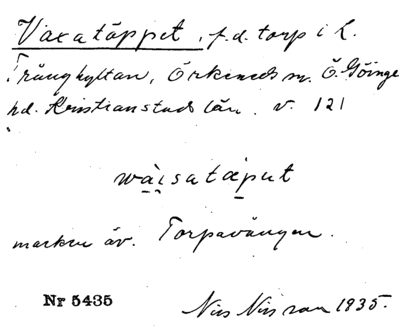 Vaxatäppet, f.d. torp i L.
Trånghyltan, Örkeneds sn. Ö. Göinge
hd. Kristianstads län. v. 121
wàisatáput
marken äv. Torpavången.
Nr 5435 Nils Nilsson 1935.